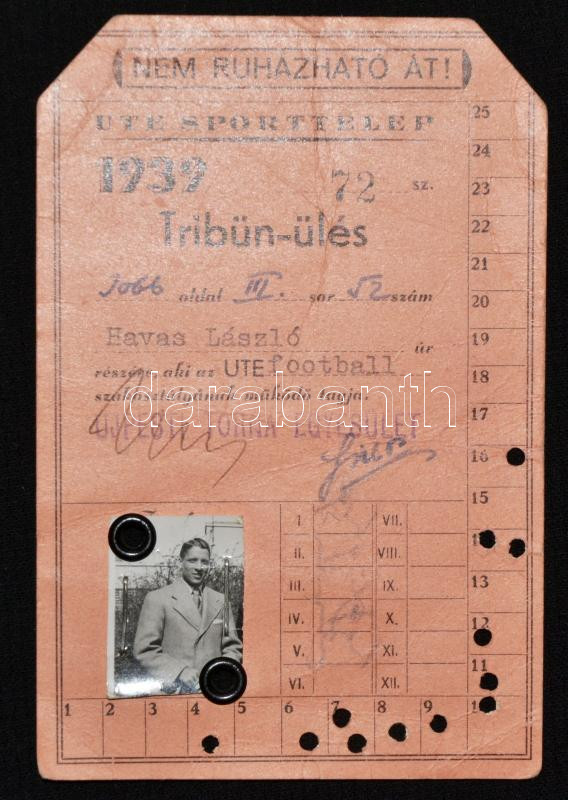 NEM RUHÁZHATÓ ÁT!
UTE SPORTTELEP
1939 72 sz.
Tribün-ülés
Jobb oldal III. sor 52 szám
Havas László úr
részére, aki az UTE football
szakosztályának működő tagja.
ÚJPESTI TORNA EGYESÜLET
darabanth
25
24
23
22
21
20
19
18
17
16
15
13
12
11
I. VII.
II. VIII.
III. IX.
IV. X.
V. XI.
VI. XII.
1 2 3 4 5 6 7 8 9 10